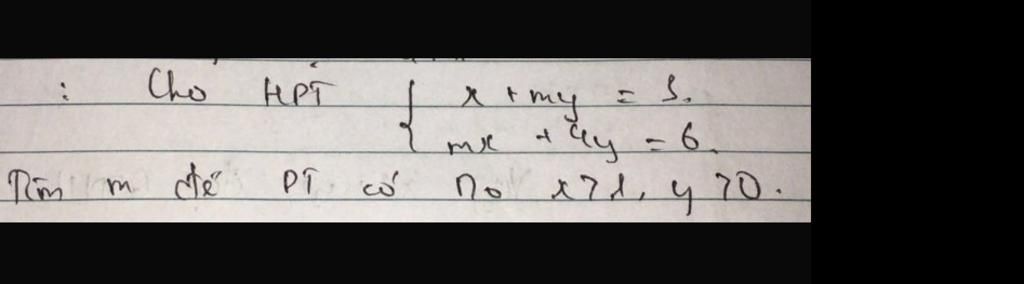 : Cho HPT { x + my = 3.
mx + 4y = 6.
Tìm m để PT có no x > 1, y > 0.